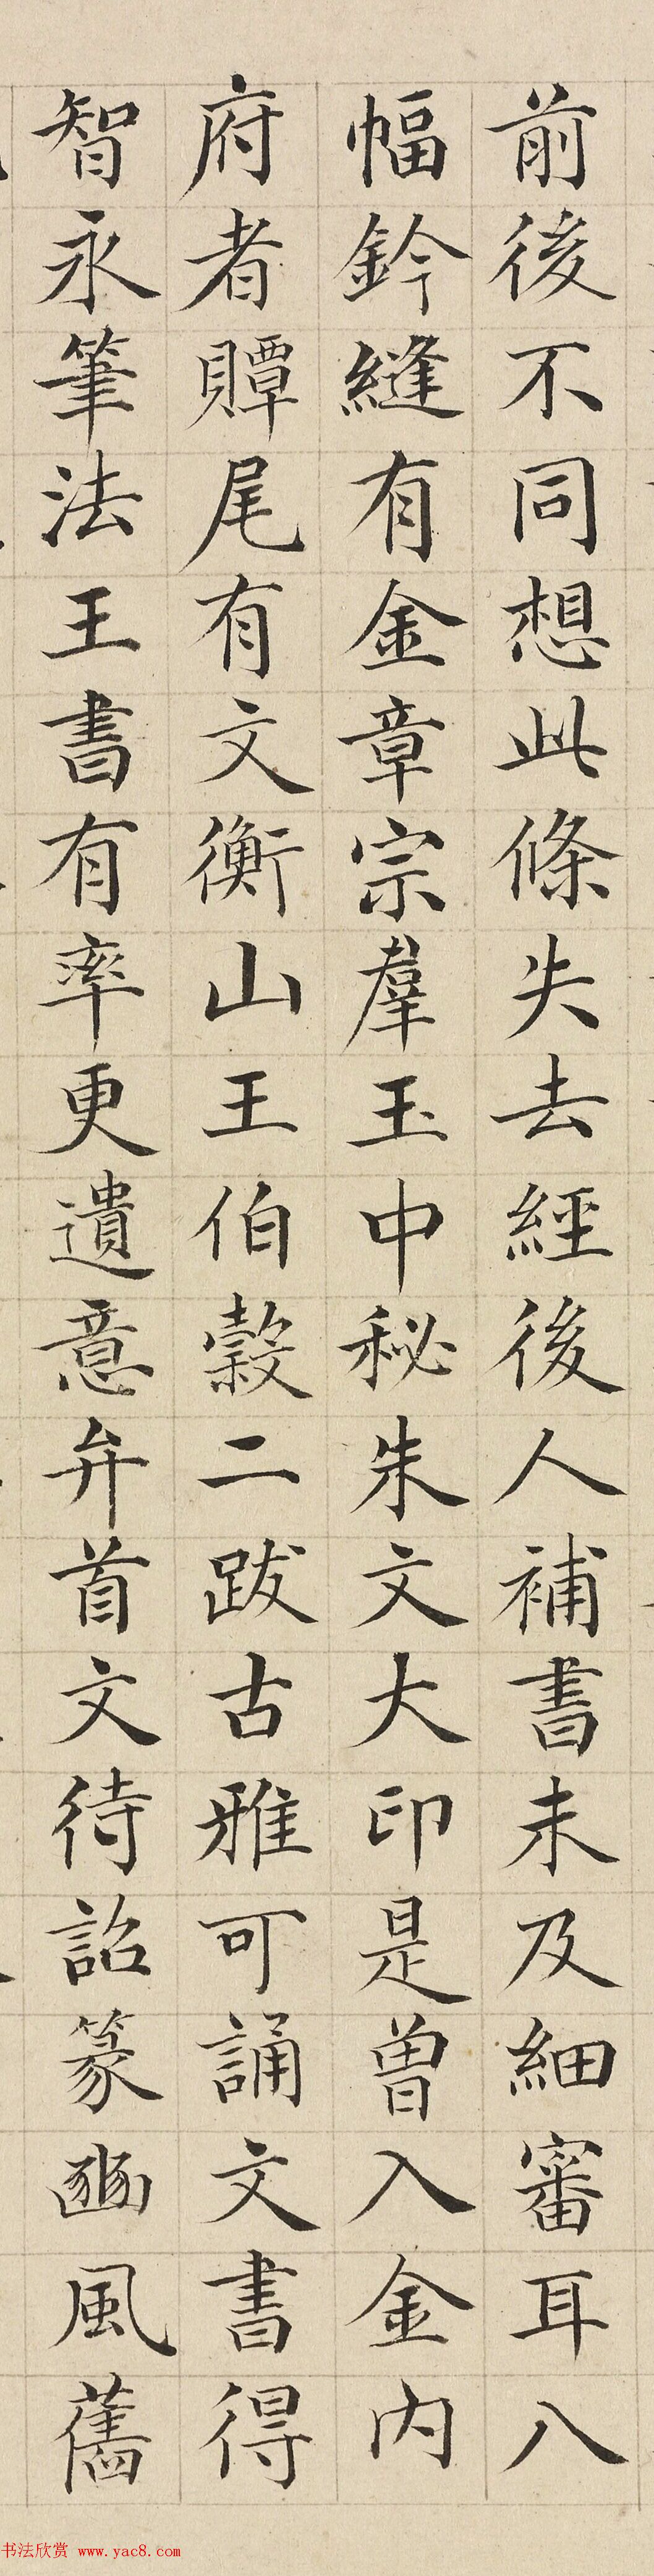 前後不同想此條失去經後人補書未及細審耳八
幅鈐縫有金章宗羣玉中秘朱文大印是曾入金內
府者贉尾有文衡山王伯穀二跋古雅可誦文書得
智永筆法王書有率更遺意弁首文待詔篆豳風舊
书法欣赏 www.yac8.com